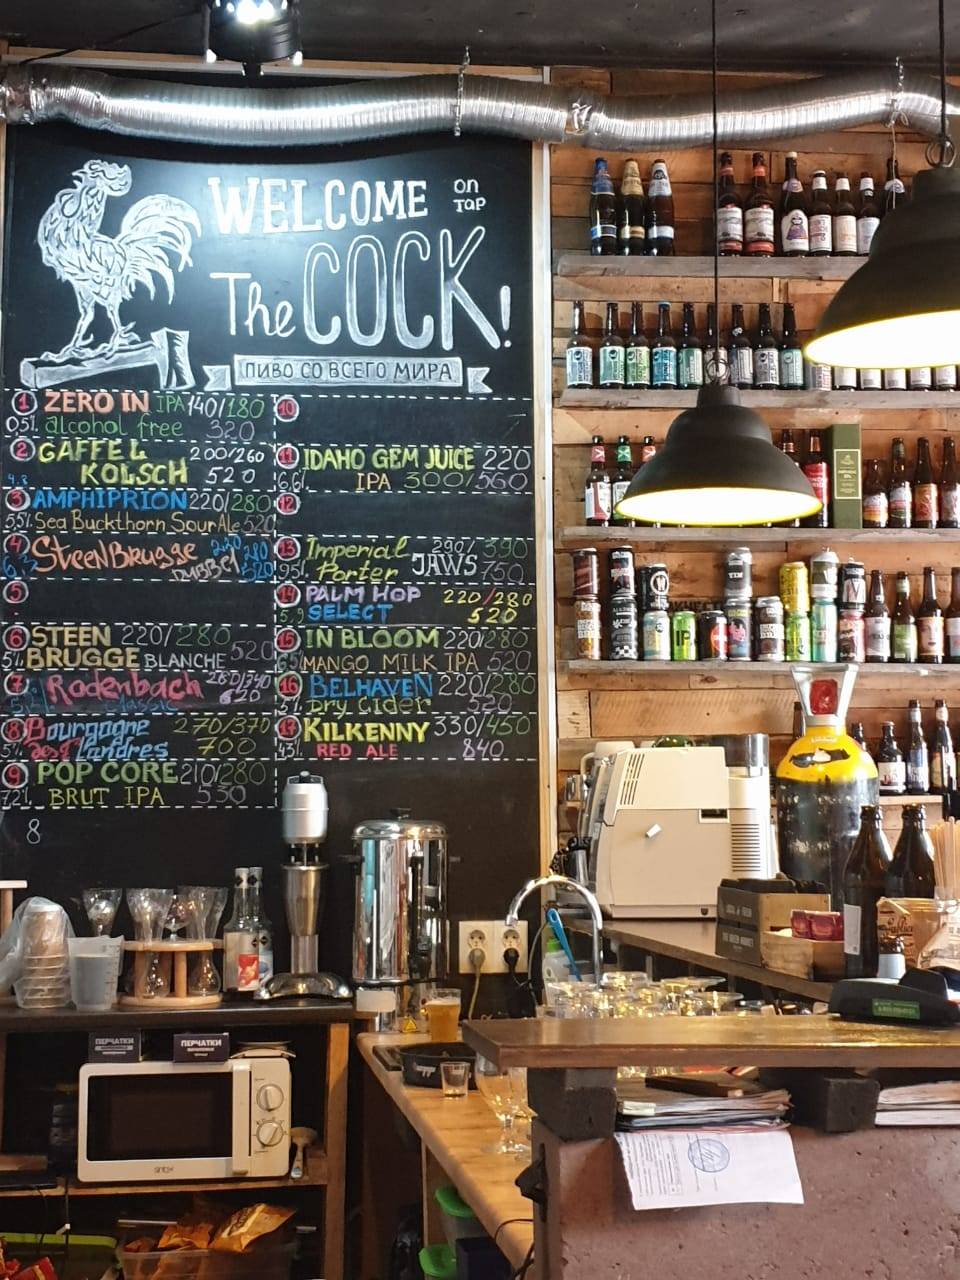 WELCOME on TAP
The COCK!
ПИВО СО ВСЕГО МИРА
1 ZERO IN IPA 140/180
0,5% alcohol free 320
2 GAFFEL 200/260
4.8 KOLSCH 520
3 AMPHIPRION 220/280
5,5% Sea Buckthorn Sour Ale 520
4 STEENBRUGGE 220 280
DUBBEL 520
5
6 STEEN 220/280
5% BRUGGE BLANCHE 520
7 Rodenbach 260/340
classic 620
8 Bourgogne 270/370
5% des Flandres 700
9 POP CORE 210/280
7,2% BRUT IPA 530
8
10
11 IDAHO GEM JUICE 220
6,6% IPA 300/560
12
13 Imperial 290/390
9,5% Porter JAWS 750
14 PALM HOP 220/280
5,9 SELECT 520
15 IN BLOOM 220/280
6,5% MANGO MILK IPA 520
16 BELHAVEN 220/280
5% Dry Cider 520
17 KILKENNY 330/450
4,3% RED ALE 840
ПЕРЧАТКИ
ПЕРЧАТКИ
sinbo